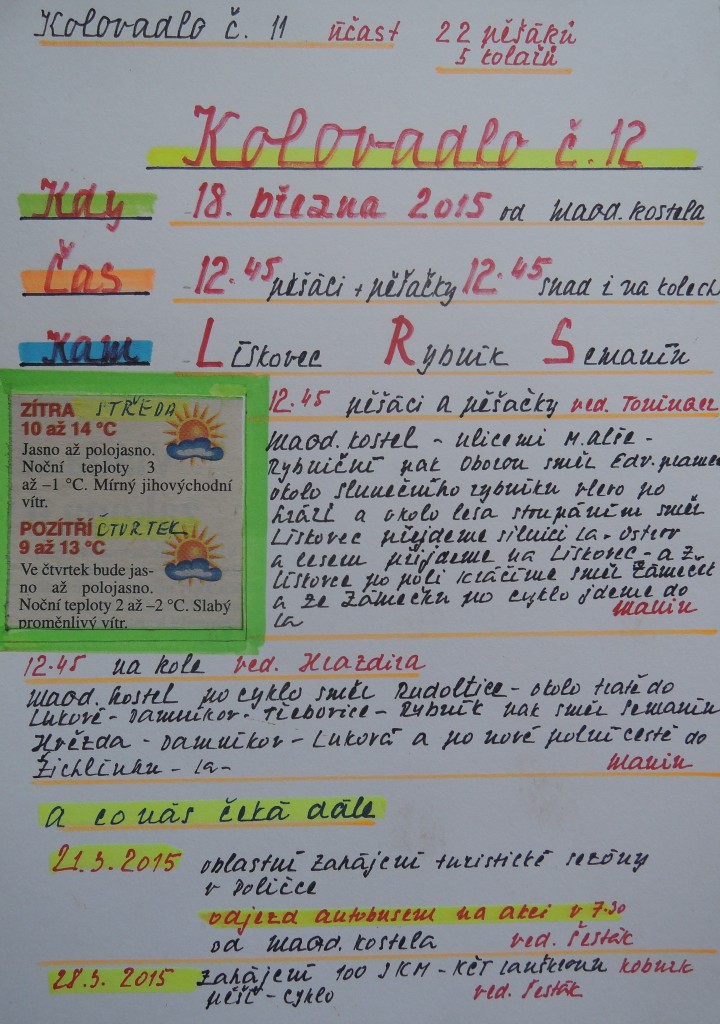 Kolovadlo č. 11 účast 22 pěšáků
5 kolařů
Kolovadlo č. 12
Kdy 18. března 2015 od Magd. kostela
Čas 12.45 pěšáci + pěšačky 12.45 snad i na kolech
Kam Lískovec Rybník Semanín
ZÍTRA STŘEDA
10 až 14 °C
Jasno až polojasno.
Noční teploty 3
až –1 °C. Mírný jihovýchodní
vítr.
POZÍTŘÍ ČTVRTEK
9 až 13 °C
Ve čtvrtek bude jas-
no až polojasno.
Noční teploty 2 až –2 °C. Slabý
proměnlivý vítr.
12.45 pěšáci a pěšačky ved.
Magd. kostel - ulicemi M. alše -
Rybniční pak Oborou směr Edv.
okolo Slunečního rybníku vlevo po
hrázi a okolo lesa stoupáním směr
Lískovec přejdeme silnici La - Ostrov
a lesem přijdeme na Lískovec - a z
Lískovce po poli kráčíme směr Zámeček
a ze Zámečku po cyklo jdeme do
La Manin
12.45 na kole ved. Hrazdira
Magd. kostel po cyklo směr Rudoltice - okolo tratě do
Lukové - Damníkov - Třebovice - Rybník pak směr Semanín
Hvězda - Damníkov - Luková a po nové polní cestě do
Žichlínku - La - Manin
A co nás čeká dále
21.3.2015 oblastní zahájení turistické sezóny
v Poličce
odjezd autobusem na akci v 7.30
od Magd. kostela ved. Šesták
28.3.2015 zahájení 100 JKM - KČT Lanškroun
pěší - cyklo ved. Šesták